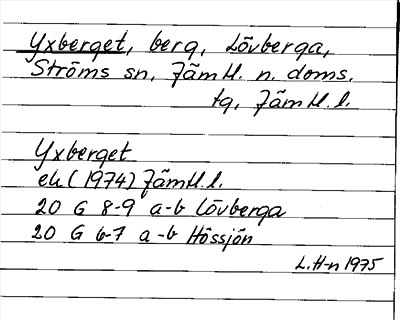 Yxberget, berg, Lövberga,
Ströms sn, Jämtl. n. doms.
tg, Jämtl. l.
Yxberget
ek (1974) Jämtl. l.
20 G 8-9 a-b Lövberga
20 G 6-7 a-b Hössjön
L. H-n 1975